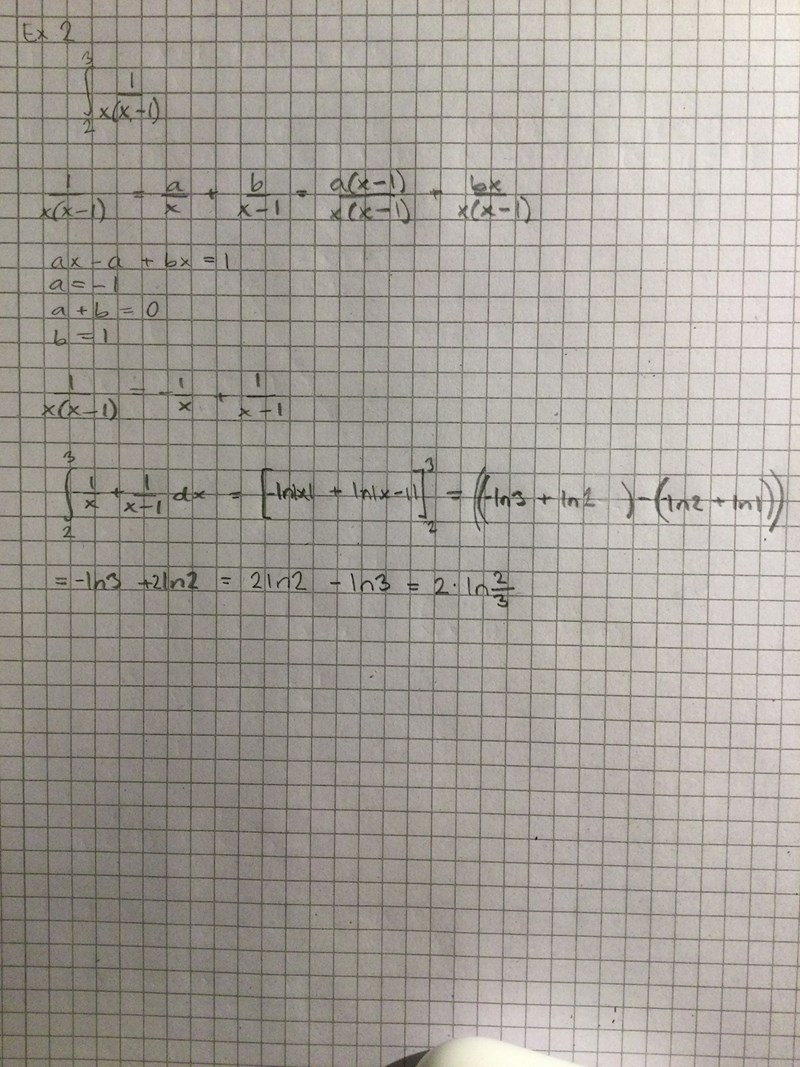 Ex 2
∫₂³ 1/(x(x-1))
1/(x(x-1)) = a/x + b/(x-1) = a(x-1)/(x(x-1)) + bx/(x(x-1))
ax - a + bx = 1
a = -1
a + b = 0
b = 1
1/(x(x-1)) = -1/x + 1/(x-1)
∫₂³ 1/x + 1/(x-1) dx = [-ln|x| + ln|x-1|]₂³ = ((-ln3 + ln2) - (ln2 + ln1))
= -ln3 + 2ln2 = 2ln2 - ln3 = 2·ln 2/3